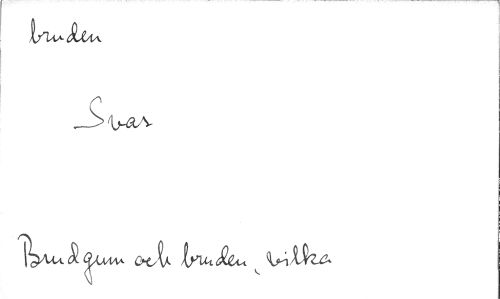 bruden
Svas
Brudgum och bruden, vilka